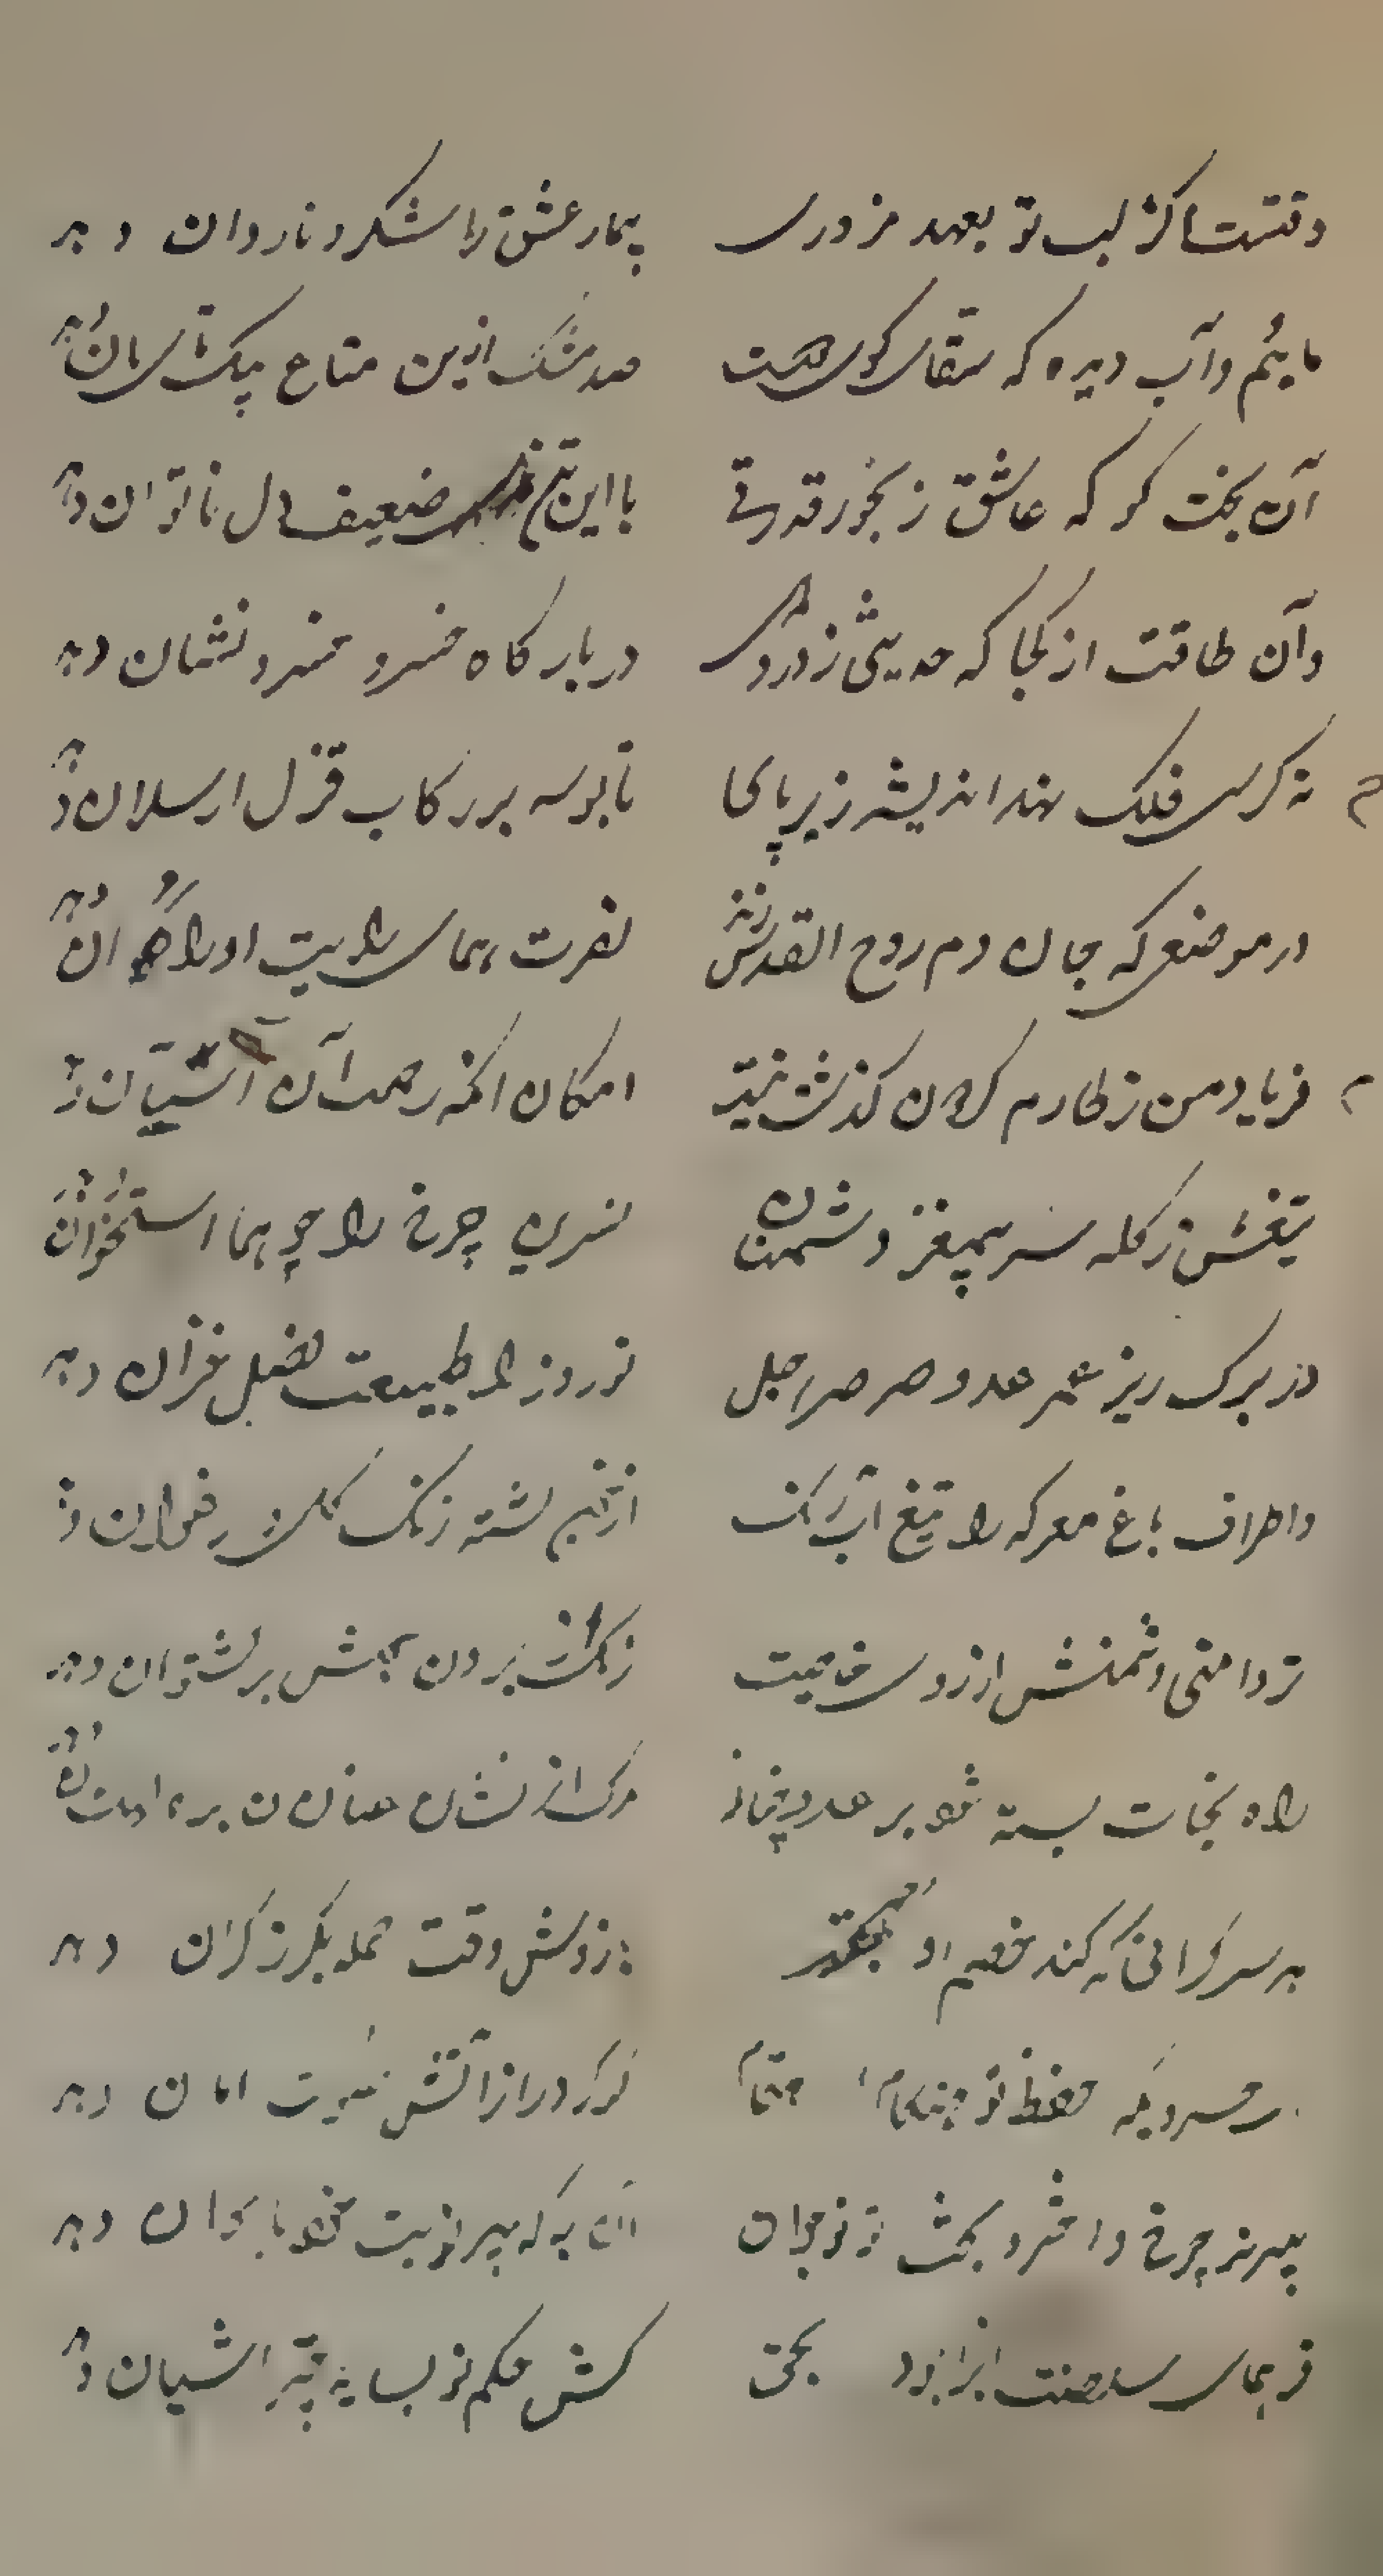 وقتست کز لب تو بعهد مزوری بیمار عشق را شکر و ناردان دهد
مائیم و آب دیده که سقای کوی تست صد مشک ازین متاع بیک تای نان دهد
آن بخت کو که عاشق رنجور قوتی با این تن ضعیف دل ناتوان دهد
وآن طاقت از کجا که حدیثی ز درد دل در بارگاه خسرو خسرو نشان دهد
نه کرسی فلک نهد اندیشه زیر پای تا بوسه بر رکاب قزل ارسلان دهد
در موضعی که جان دم روح القدس زند نصرت همای رایت او را روان دهد
فریاد من ز طارم گردون گذشت نیست امکان آنکه زحمت آن آشیان دهد
تیغش ز کله سر بیمغز دشمنان نسرین چرخ را چو هما استخوان دهد
در برگ ریز عمر عدو صرصر اجل نوروز را طبیعت فصل خزان دهد
واطراف باغ معرکه را تیغ آب رنگ از خون کشته رنگ گل و ارغوان دهد
تر دامنی دشمنش از روی خاصیت زنگ برون بر گستوان دهد
راه نجات بسته شود بر عدو چنانک مرگ از نشان عنان
هر سر گرانیی که کند خصم او روزش وقت حمله بگرز گران دهد
حفظ تو از آتش امان دهد
پیرند چرخ و اختر و بخت تو نوجوان آن به که پیر نوبت خود با جوان دهد
فر همای سلطنت بحق کش حکم تو بسایه چتر آشیان دهد